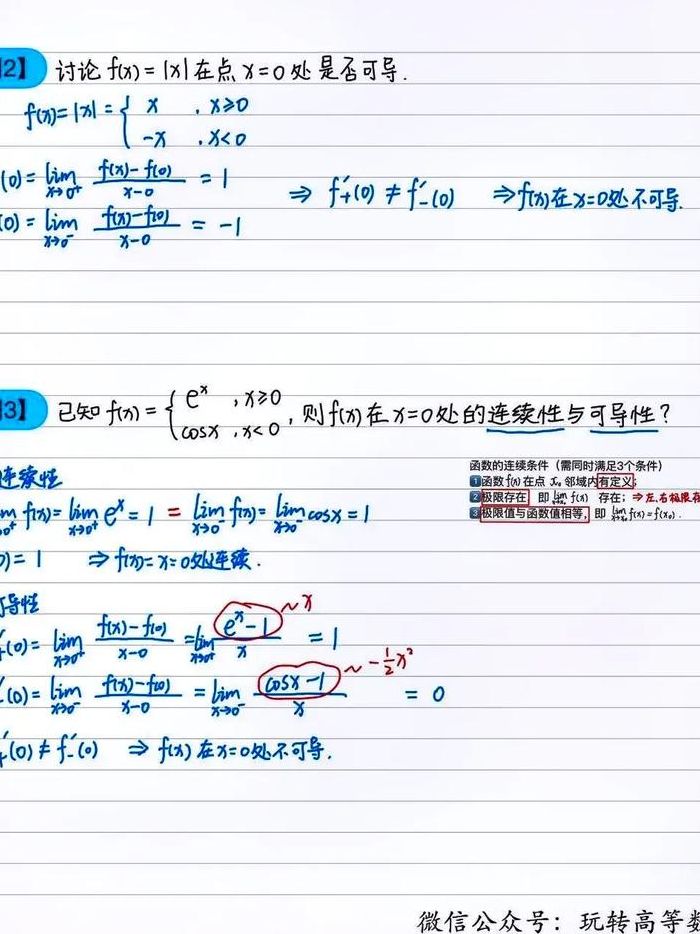 2】 讨论 f(x) = |x| 在点 x=0 处是否可导.
f(x)=|x|={ x , x≥0
-x , x<0
(0) = lim x→0⁺ f(x)-f(0) / x-0 = 1
(0) = lim x→0⁻ f(x)-f(0) / x-0 = -1
⇒ f₊′(0) ≠ f₋′(0) ⇒ f(x)在x=0处不可导.
3】 已知 f(x) = { eˣ , x≥0
cosx , x<0 , 则f(x)在x=0处的连续性与可导性?
连续性
函数的连续条件（需同时满足3个条件）
1 函数f(x)在点 x₀ 邻域内有定义;
2 极限存在 即 lim x→x₀ f(x) 存在; ⇒左.右极限存
3 极限值与函数值相等, 即 lim x→x₀ f(x)=f(x₀).
m x→0⁺ f(x)=lim x→0⁺ eˣ=1 = lim x→0⁻ f(x)=lim x→0⁻ cosx=1
)=1 ⇒ f(x)=x=0处连续.
导性
(0)= lim x→0⁺ f(x)-f(0) / x-0 = lim x→0⁺ eˣ-1 / x = 1
~x
(0)= lim x→0⁻ f(x)-f(0) / x-0 = lim x→0⁻ cosx-1 / x = 0
~ -½x²
′(0) ≠ f₋′(0) ⇒ f(x)在x=0处不可导.
微信公众号：玩转高等数